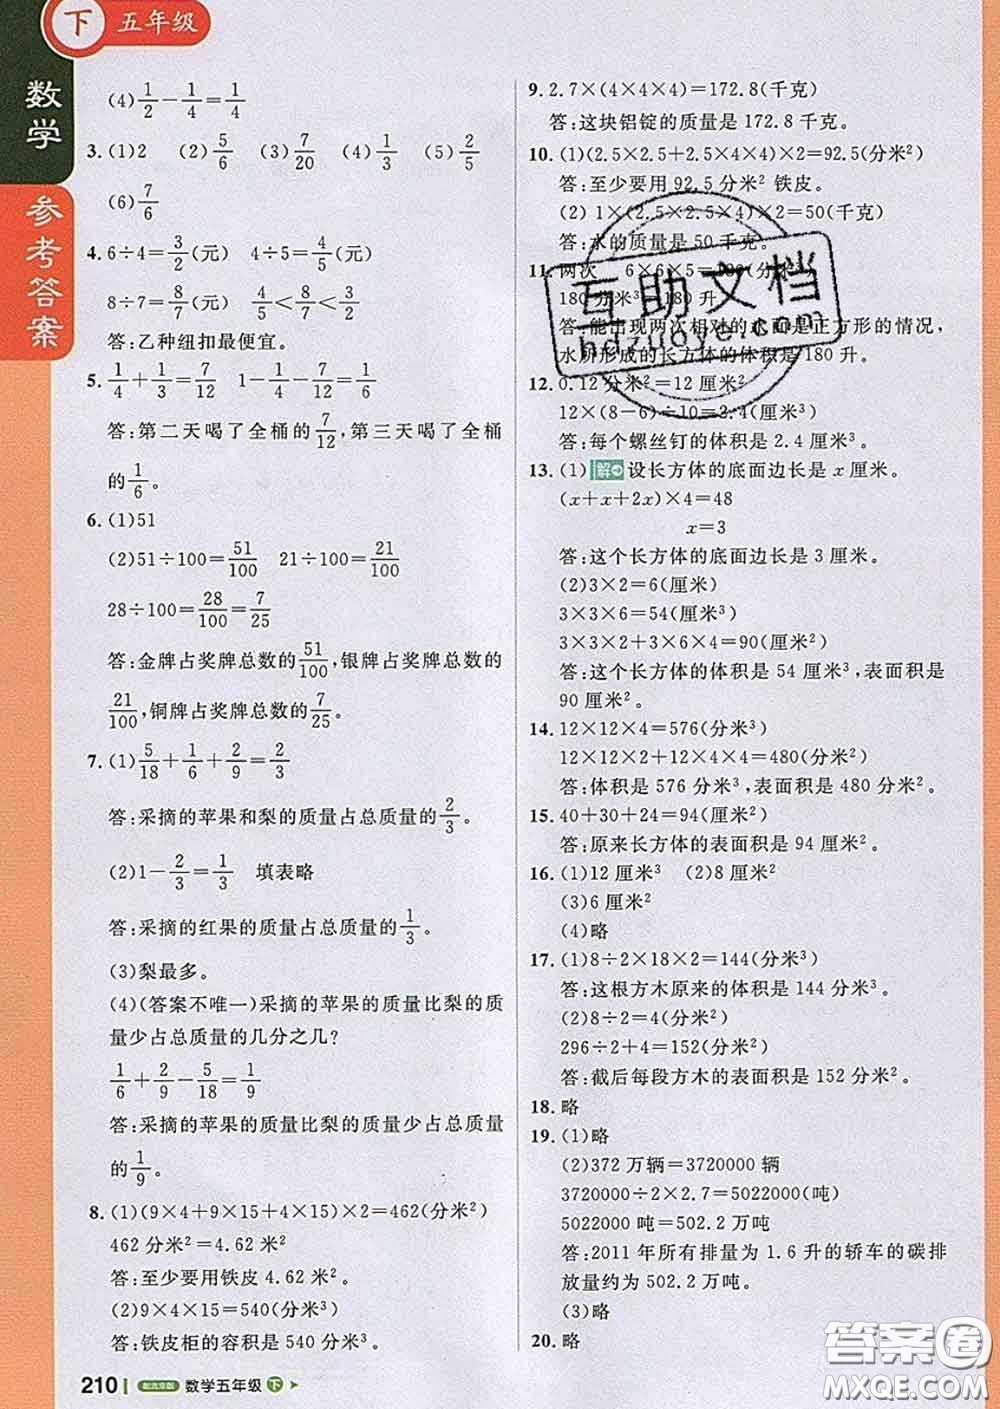 下 五年级
数学
参考答案
(4) 1/2 - 1/4 = 1/4
3. (1)2 (2) 5/6 (3) 7/20 (4) 1/3 (5) 2/5
(6) 7/6
4. 6÷4=3/2(元) 4÷5=4/5(元)
8÷7=8/7(元) 4/5<8/7<3/2
答:乙种纽扣最便宜。
5. 1/4+1/3=7/12 1-1/4-7/12=1/6
答:第二天喝了全桶的7/12,第三天喝了全桶
的1/6。
6. (1)51
(2)51÷100=51/100 21÷100=21/100
28÷100=28/100=7/25
答:金牌占奖牌总数的51/100,银牌占奖牌总数的
21/100,铜牌占奖牌总数的7/25。
7. (1) 5/18+1/6+2/9=2/3
答:采摘的苹果和梨的质量占总质量的2/3。
(2)1-2/3=1/3 填表略
答:采摘的红果的质量占总质量的1/3。
(3)梨最多。
(4)(答案不唯一)采摘的苹果的质量比梨的质
量少占总质量的几分之几?
1/6+2/9-5/18=1/9
答:采摘的苹果的质量比梨的质量少占总质量
的1/9。
8. (1)(9×4+9×15+4×15)×2=462(分米²)
462分米²=4.62米²
答:至少要用铁皮 4.62 米²。
(2)9×4×15=540(分米³)
答:铁皮柜的容积是 540 分米³。
9. 2.7×(4×4×4)=172.8(千克)
答:这块铝锭的质量是 172.8 千克。
10. (1)(2.5×2.5+2.5×4×4)×2=92.5(分米²)
答:至少要用 92.5 分米² 铁皮。
(2) 1×(2.5×2.5×4)×2=50(千克)
答:水的质量是 50 千克。
11. 两次 6×6×5=180(分米³)
180分米³=180升
答:能出现两次相对的水面是正方形的情况,
水所形成的长方体的体积是 180 升。
12. 0.12 分米²=12 厘米²
12×(8-6)÷10=2.4(厘米³)
答:每个螺丝钉的体积是 2.4 厘米³。
13. (1) 解 设长方体的底面边长是 x 厘米。
(x+x+2x)×4=48
x=3
答:这个长方体的底面边长是 3 厘米。
(2)3×2=6(厘米)
3×3×6=54(厘米³)
3×3×2+3×6×4=90(厘米²)
答:这个长方体的体积是 54 厘米³,表面积是
90 厘米²。
14. 12×12×4=576(分米³)
12×12×2+12×4×4=480(分米²)
答:体积是 576 分米³,表面积是 480 分米²。
15. 40+30+24=94(厘米²)
答:原来长方体的表面积是 94 厘米²。
16. (1)12 厘米³ (2)8 厘米²
(3)6 厘米²
(4)略
17. (1)8÷2×18×2=144(分米³)
答:这根方木原来的体积是 144 分米³。
(2)8÷2=4(分米²)
296÷2+4=152(分米²)
答:截后每段方木的表面积是 152 分米²。
18. 略
19. (1)略
(2)372 万辆=3720000 辆
3720000÷2×2.7=5022000(吨)
5022000吨=502.2万吨
答:2011 年所有排量为 1.6 升的轿车的碳排
放量约为 502.2 万吨。
(3)略
20. 略
互助文档
hdzuoye.com
210 配北京版 数学五年级 下
答案圈
MXQE.COM